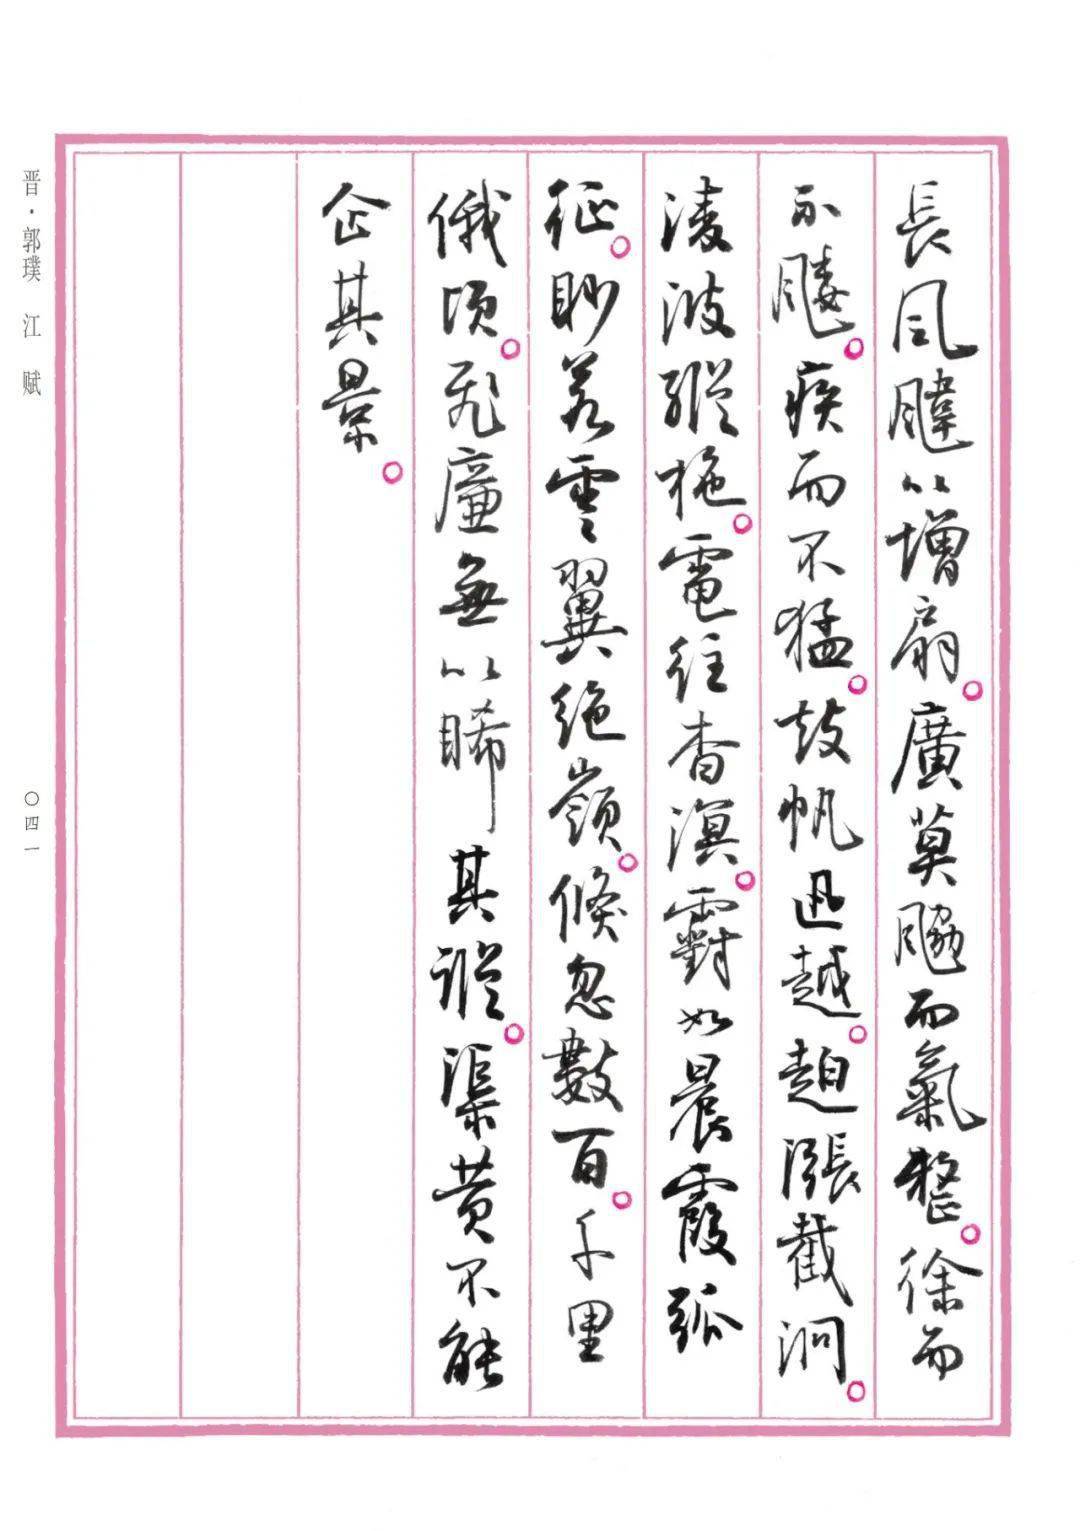 長風颹以增扇。廣莫䬅而氣整。徐而
不䬐。疾而不猛。鼓帆迅越。趠漲截泂。
淩波縱柂。電往杳溟。䨴如晨霞孤
征。眇若雲翼絕嶺。倏忽數百。千里
俄頃。飛廉無以睎其蹤。渠黃不能
企其景。
晋·郭璞 江 赋
〇四一